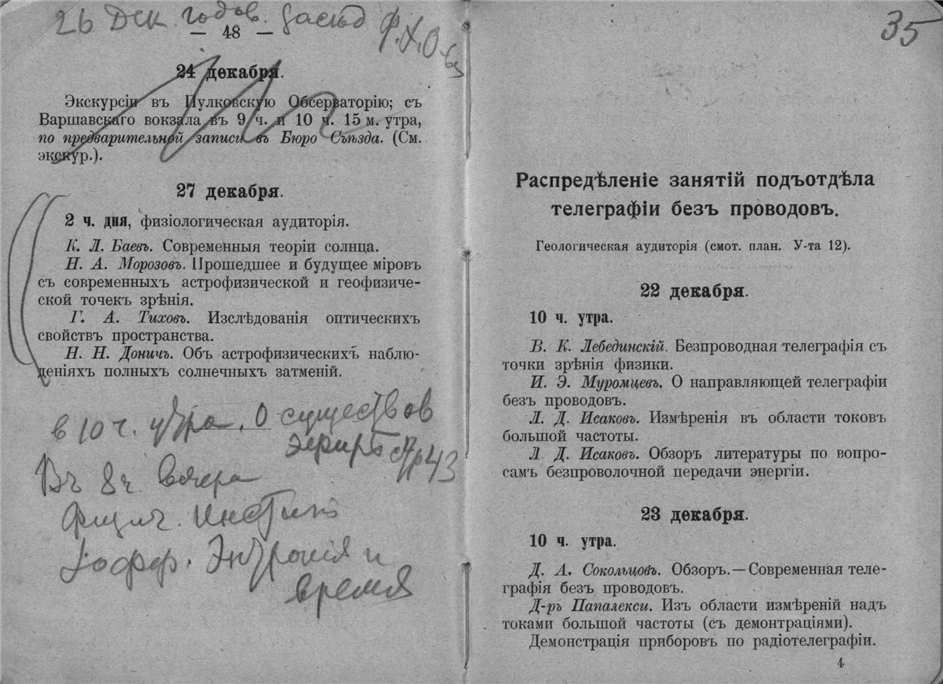 26 Дек. годов. засѣд
Ф. Х. О
— 48 —
24 декабря.
Экскурсіи въ Пулковскую Обсерваторію; съ
Варшавскаго вокзала въ 9 ч. и 10 ч. 15 м. утра,
по предварительной записи въ Бюро Съѣзда. (См.
экскур.).
27 декабря.
2 ч. дня, физіологическая аудиторія.
К. Л. Баевъ. Современныя теоріи солнца.
Н. А. Морозовъ. Прошедшее и будущее міровъ
съ современныхъ астрофизической и геофизиче-
ской точекъ зрѣнія.
Г. А. Тиховъ. Изслѣдованія оптическихъ
свойствъ пространства.
Н. Н. Доничъ. Объ астрофизическихъ наблю-
деніяхъ полныхъ солнечныхъ затменій.
в 10 ч. утра. О существов
эфира стр 43
Въ 8 ч. вечера
Физич. Инстит
Энтропія и
время
35
Распредѣленіе занятій подъотдѣла
телеграфіи безъ проводовъ.
Геологическая аудиторія (смот. план. У-та 12).
22 декабря.
10 ч. утра.
В. К. Лебединскій. Безпроводная телеграфія съ
точки зрѣнія физики.
И. Э. Муромцевъ. О направляющей телеграфіи
безъ проводовъ.
Л. Д. Исаковъ. Измѣренія въ области токовъ
большой частоты.
Л Д. Исаковъ. Обзоръ литературы по вопро-
самъ безпроволочной передачи энергіи.
23 декабря.
10 ч. утра.
Д. А. Сокольцовъ. Обзоръ.—Современная теле-
графія безъ проводовъ.
Д-ръ Папалекси. Изъ области измѣреній надъ
токами большой частоты (съ демонтраціями).
Демонстрація приборовъ по радіотелеграфіи.
4